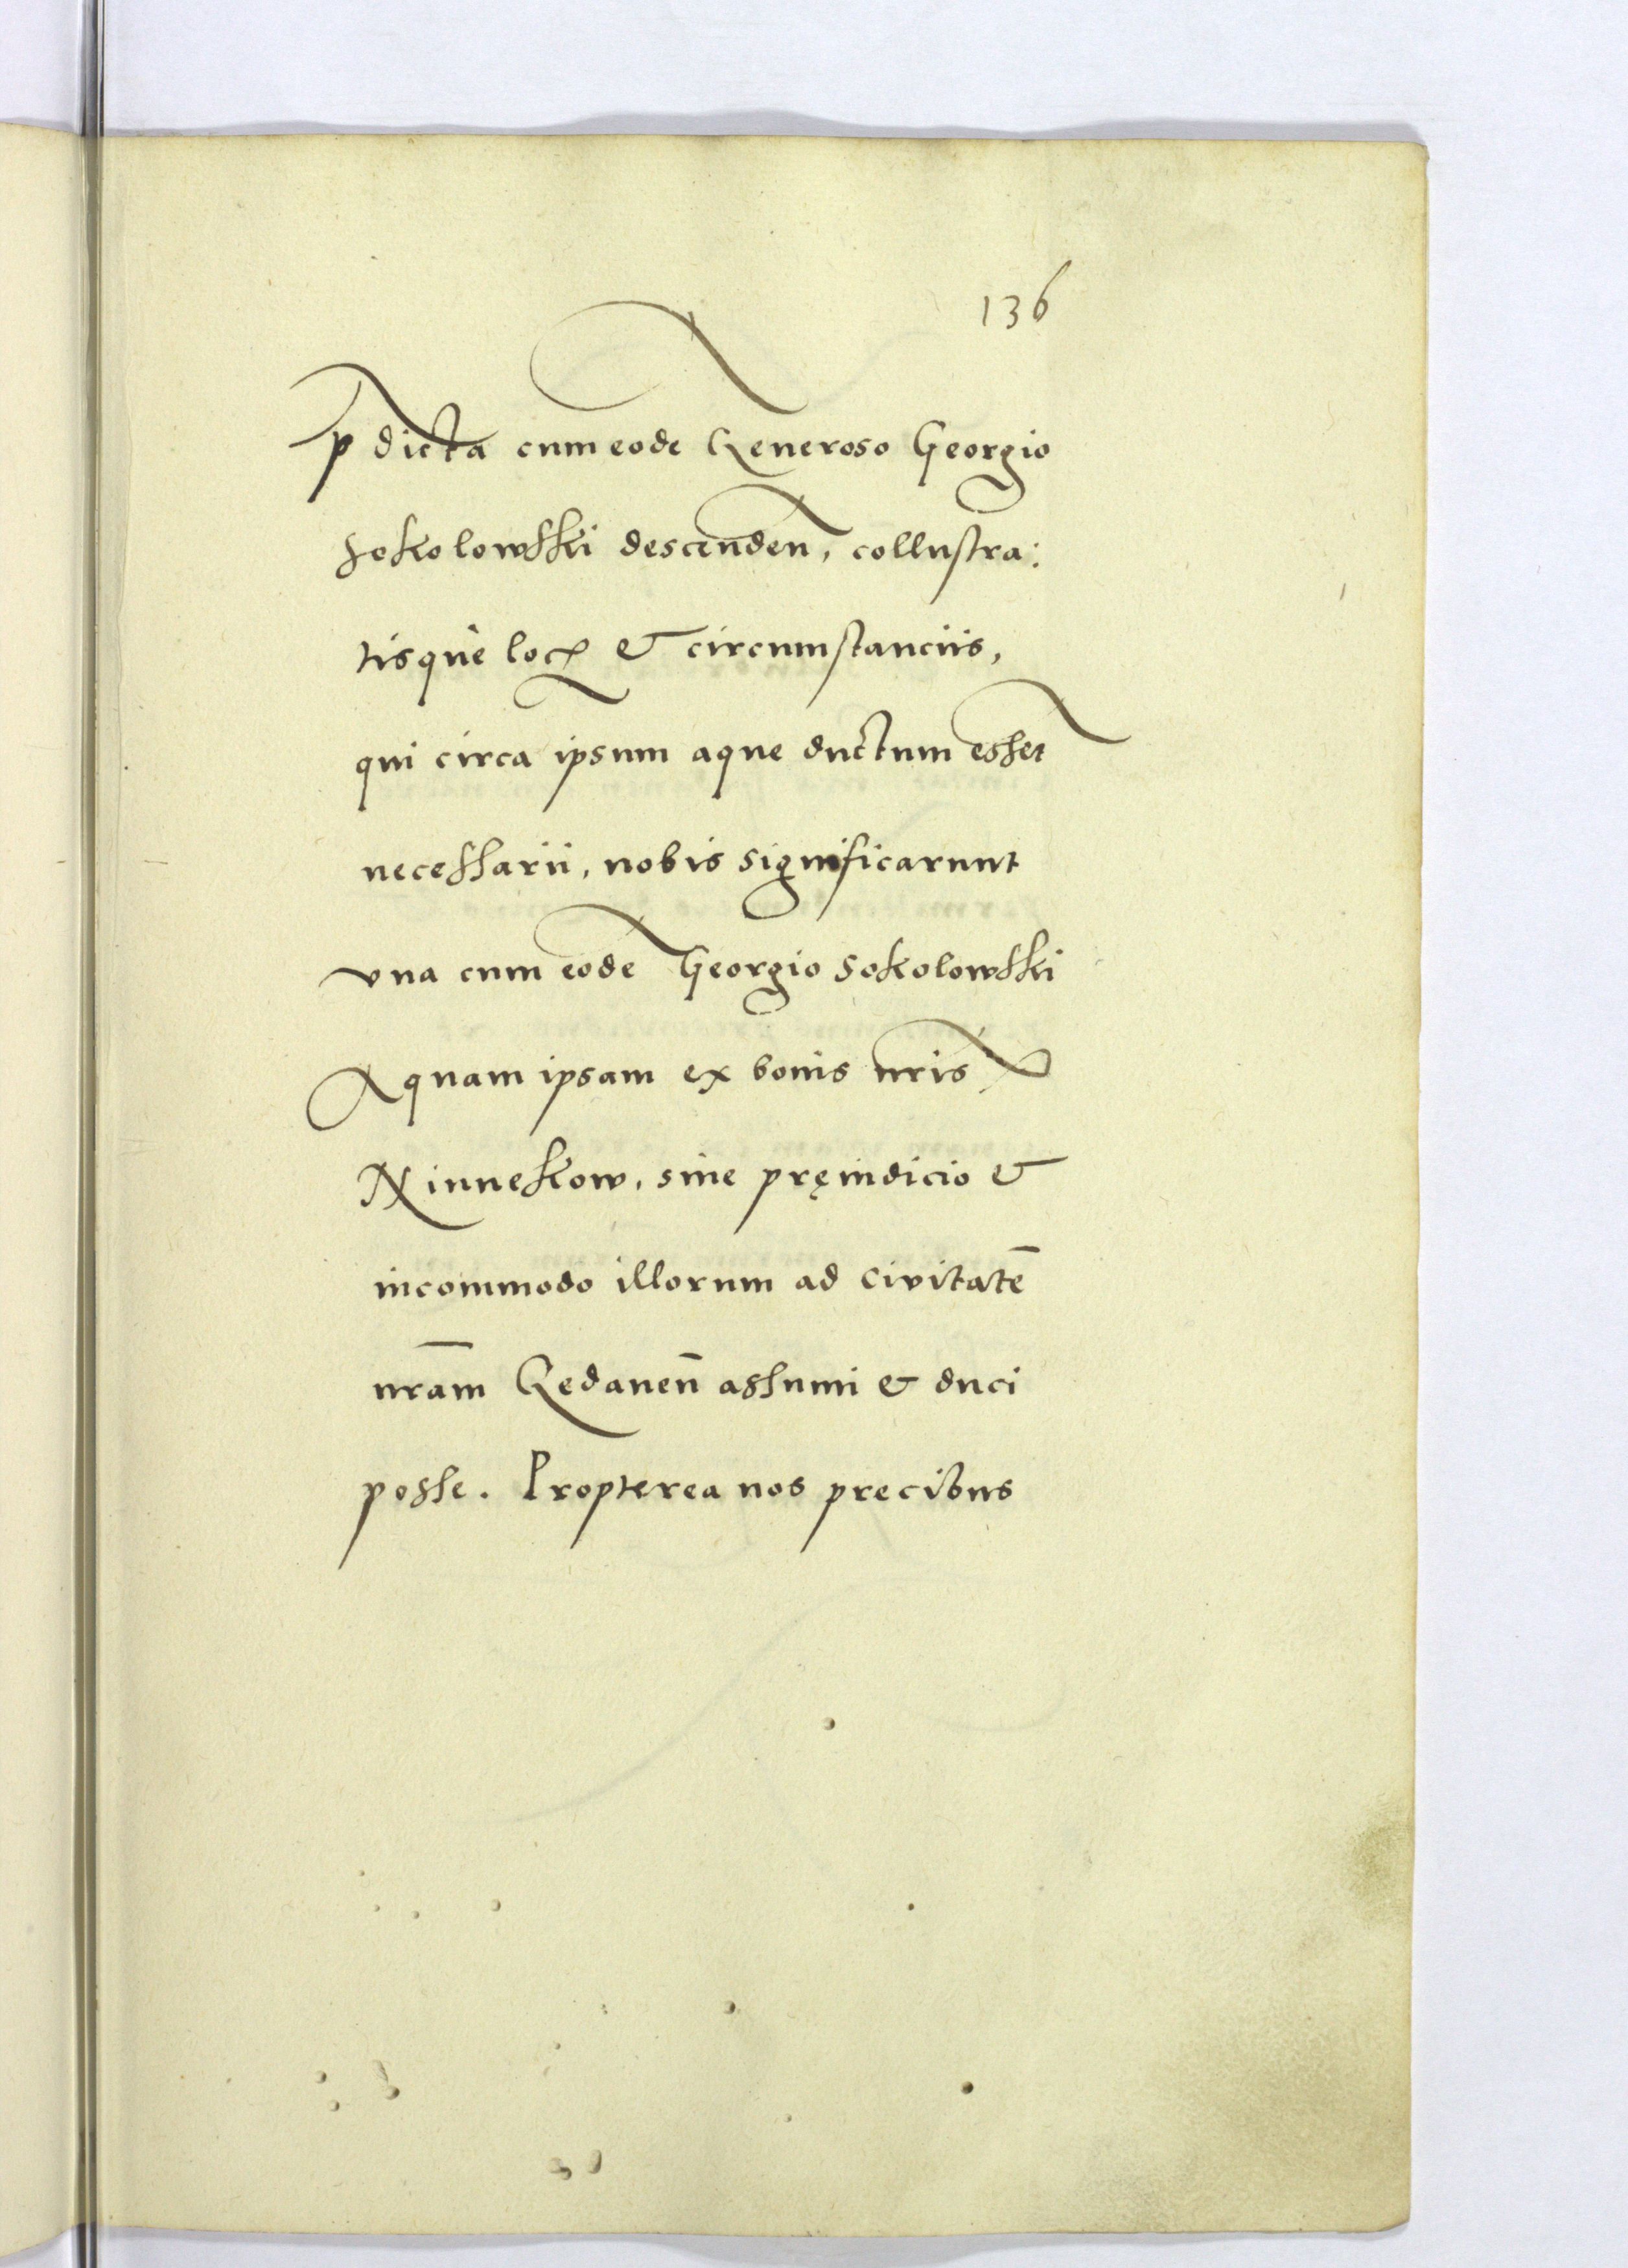 136
p̄dicta cum eodē Generoso Georgio
Sokolowsski descenden̄, collustra:
tisque locꝫ & circumstanciis,
qui circa ipsum aque ductum essēt
necessarii, nobis significarunt
vna cum eodē Georgio Sokolowsski
Aquam ipsam ex bonis nr̄is
Ninnekow, sine pręiudicio &
incommodo illorum ad civitatē
nrām Gedanen̄ assumi & duci
posse. Propterea nos precibus